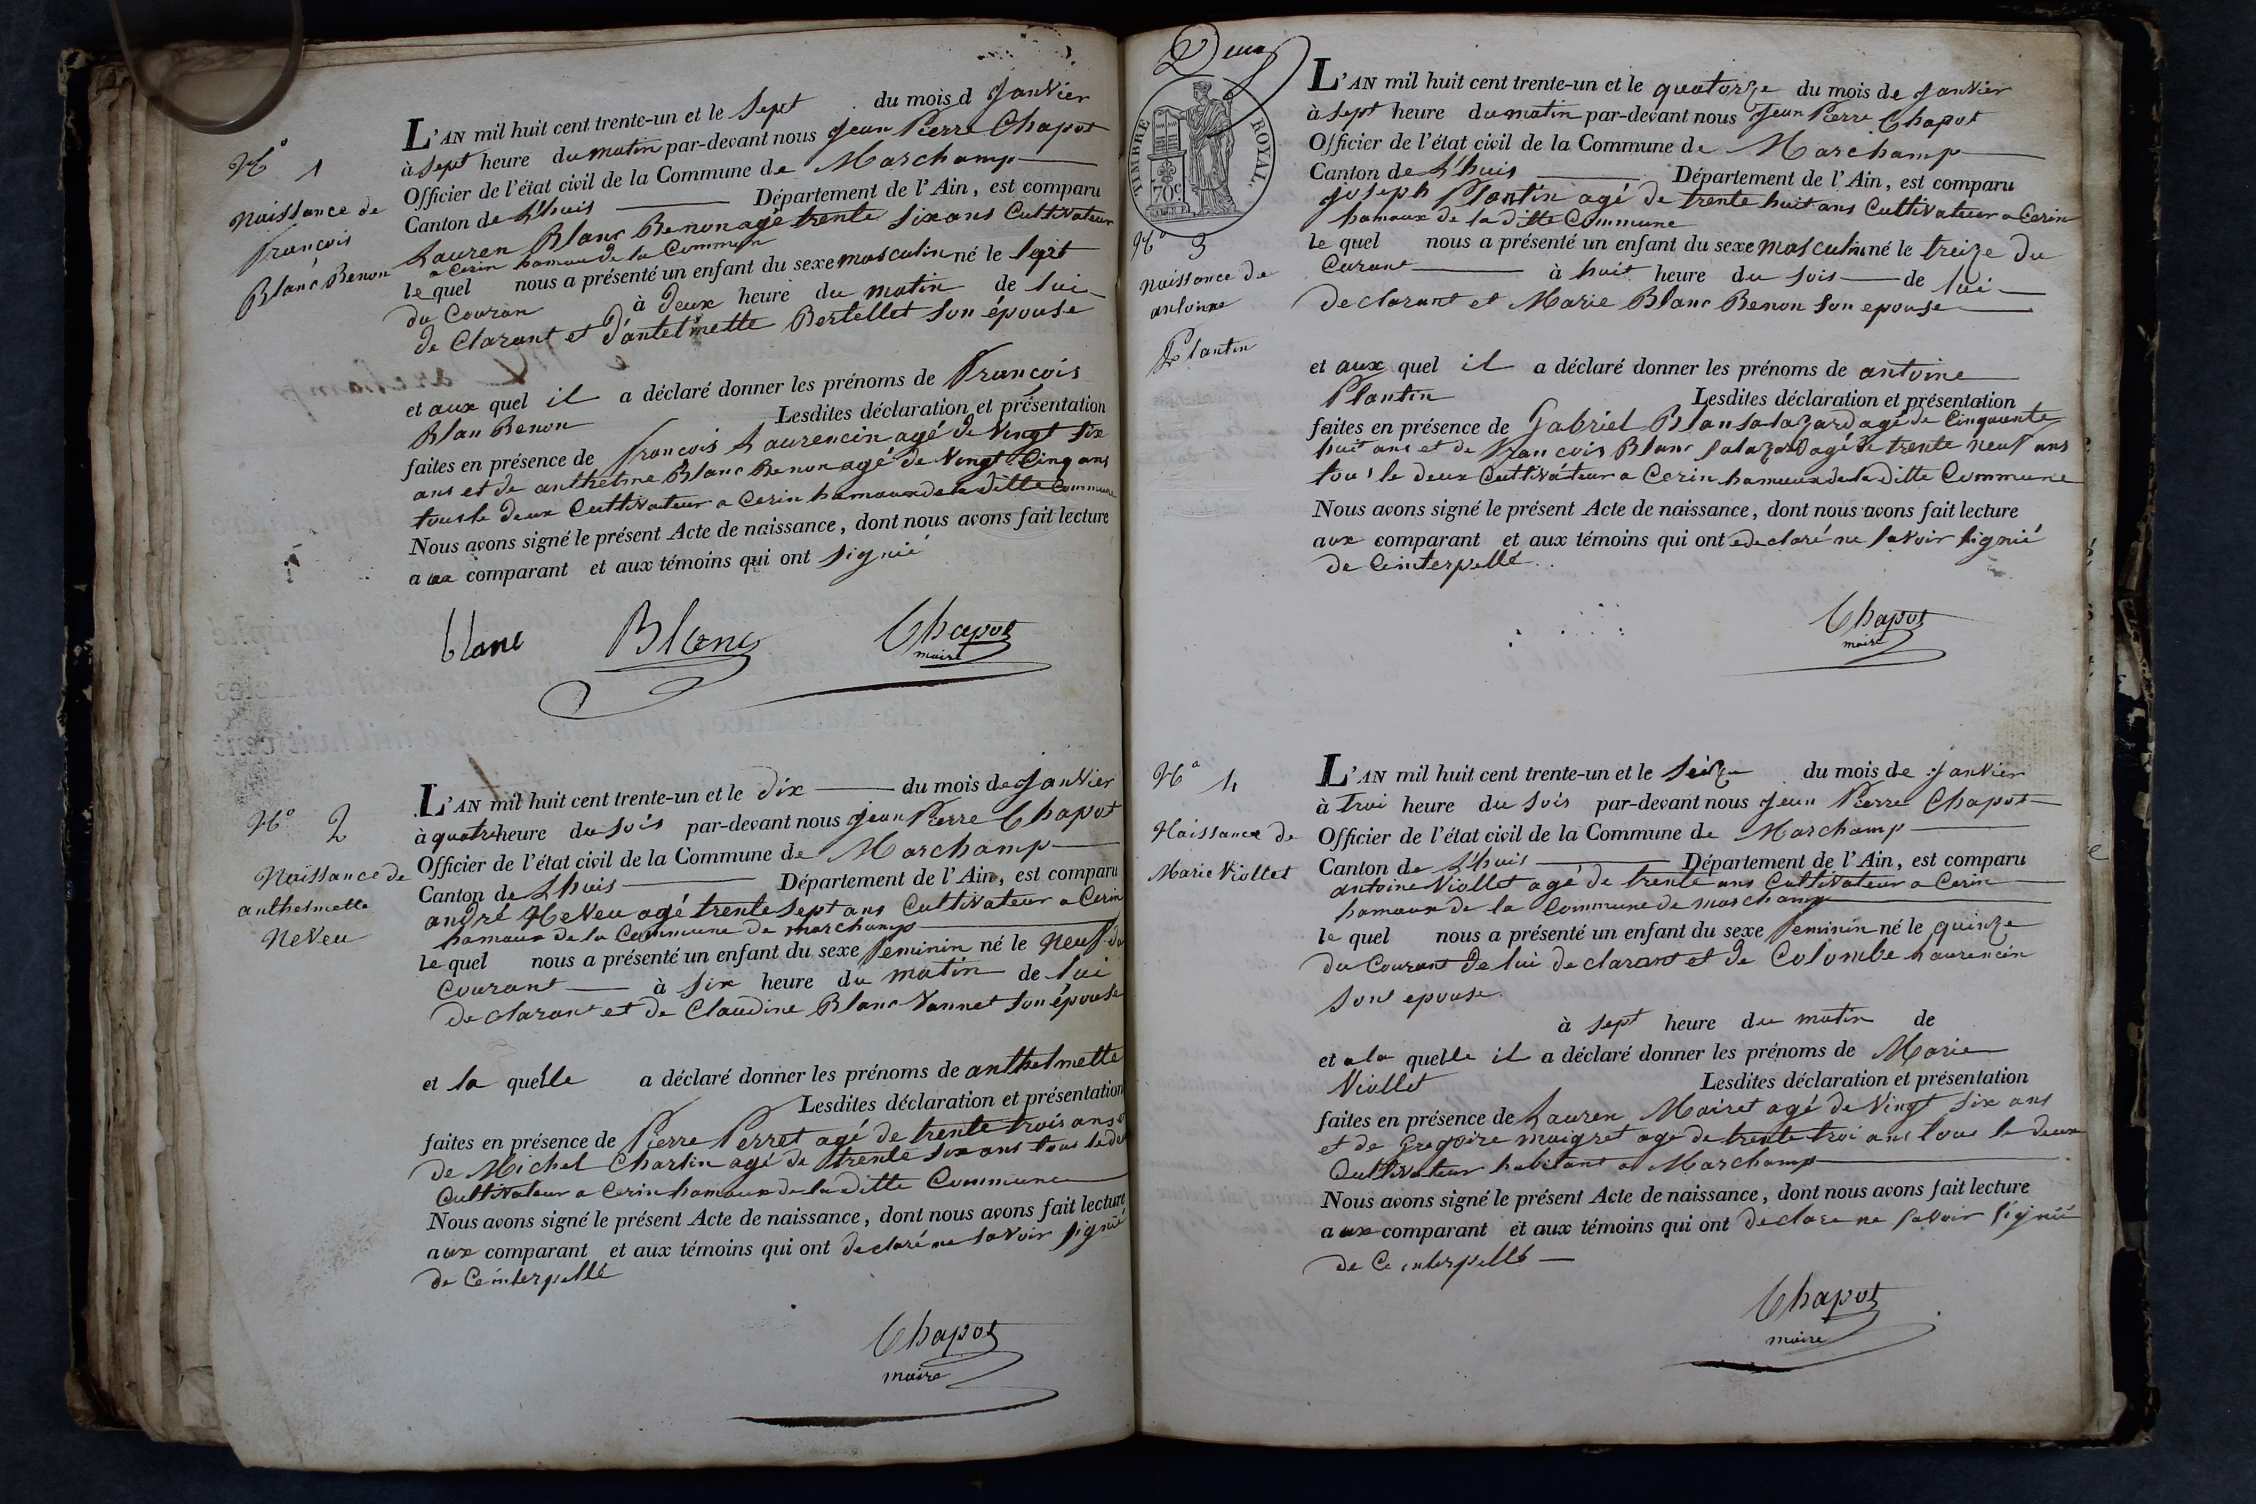 N° 1
Naissance de
François
Blanc Benon
L'AN mil huit cent trente-un et le Sept du mois d Janvier
à Sept heure du matin par-devant nous Jean Pierre Chapot
Officier de l'état civil de la Commune de Marchamp
Canton de Lhuis Département de l'Ain, est comparu
Lauren Blanc Benon agé trente six ans Cultivateur
a Cerin hamau de la Commun
le quel nous a présenté un enfant du sexe masculin né le Sept
du Couran à deux heure du matin de lui
de Clarant et d'antelmette Bertellet Son épouse
et aux quel il a déclaré donner les prénoms de François
Blan Benon Lesdites déclaration et présentation
faites en présence de François Laurencin agé de Vingt Six
ans et de anthelme Blanc Benon agé de Vingt Cinq ans
tous le deux Cultivateur a Cerin hamaux de la ditte Commune
Nous avons signé le présent Acte de naissance, dont nous avons fait lecture
aux comparant et aux témoins qui ont signié
blanc Blanc Chapot
maire
N° 2
Naissance de
anthelmette
Neveu
L'AN mil huit cent trente-un et le dix du mois de Janvier
à quatre heure du Sois par-devant nous Jean Pierre Chapot
Officier de l'état civil de la Commune de Marchamp
Canton de Lhuis Département de l'Ain, est comparu
andré Neveu agé trente Sept ans Cultivateur a Cerin
hamaux de la Commune de marchamp
le quel nous a présenté un enfant du sexe feminin né le Neuf du
Courant à Six heure du matin de lui
de clarant et de Claudine Blanc Vannet Son épouse
et la quelle a déclaré donner les prénoms de anthelmette
Lesdites déclaration et présentation
faites en présence de Pierre Perret agé de trente trois ans et
de Michel Charlin agé de trente Six ans tous le
Cultivateur a Cerin hamaux de la ditte Commune
Nous avons signé le présent Acte de naissance, dont nous avons fait lecture
aux comparant et aux témoins qui ont declaré ne Savoir Signié
de Ce interpellé
Chapot
maire
Deux
TIMBRE ROYAL
70 c.
N° 3
Naissance de
antoine
Plantin
L'AN mil huit cent trente-un et le quatorze du mois de Janvier
à Sept heure du matin par-devant nous Jean Pierre Chapot
Officier de l'état civil de la Commune de Marchamp
Canton de Lhuis Département de l'Ain, est comparu
joseph Plantin agé de trente huit ans Cultivateur a Cerin
hamaux de la ditte Commune
le quel nous a présenté un enfant du sexe masculin né le treize du
Curant à huit heure du Sois de lui
declarant et Marie Blanc Benon Son epouse
et aux quel il a déclaré donner les prénoms de antoine
Plantin Lesdites déclaration et présentation
faites en présence de Gabriel Blan Salazard agé de Cinquante
huit ans et de François Blanc Salazard agé de trente Neuf ans
tous le deux Cultivateur a Cerin hamaux de la ditte Commune
Nous avons signé le présent Acte de naissance, dont nous avons fait lecture
aux comparant et aux témoins qui ont declaré ne Savoir Signié
de Ce interpellé
Chapot
maire
N° 4
Naissance de
Marie Viollet
L'AN mil huit cent trente-un et le Seize du mois de Janvier
à Troi heure du Sois par-devant nous Jean Pierre Chapot
Officier de l'état civil de la Commune de Marchamp
Canton de Lhuis Département de l'Ain, est comparu
antoine Viollet agé de trente ans Cultivateur a Cerin
hamaux de la Commune de marchamp
le quel nous a présenté un enfant du sexe feminin né le quinze
du Courant de lui declarant et de Colombe Laurencin
Son epouse
à Sept heure du matin de
et a la quelle il a déclaré donner les prénoms de Marie
Viollet Lesdites déclaration et présentation
faites en présence de Lauren Mairet agé de Vingt Six ans
et de Gregoire maigret agé de trente troi ans tous le deux
Cultivateur habitant a Marchamp
Nous avons signé le présent Acte de naissance, dont nous avons fait lecture
aux comparant et aux témoins qui ont declare ne Savoir Signié
de Ce interpellé
Chapot
maire